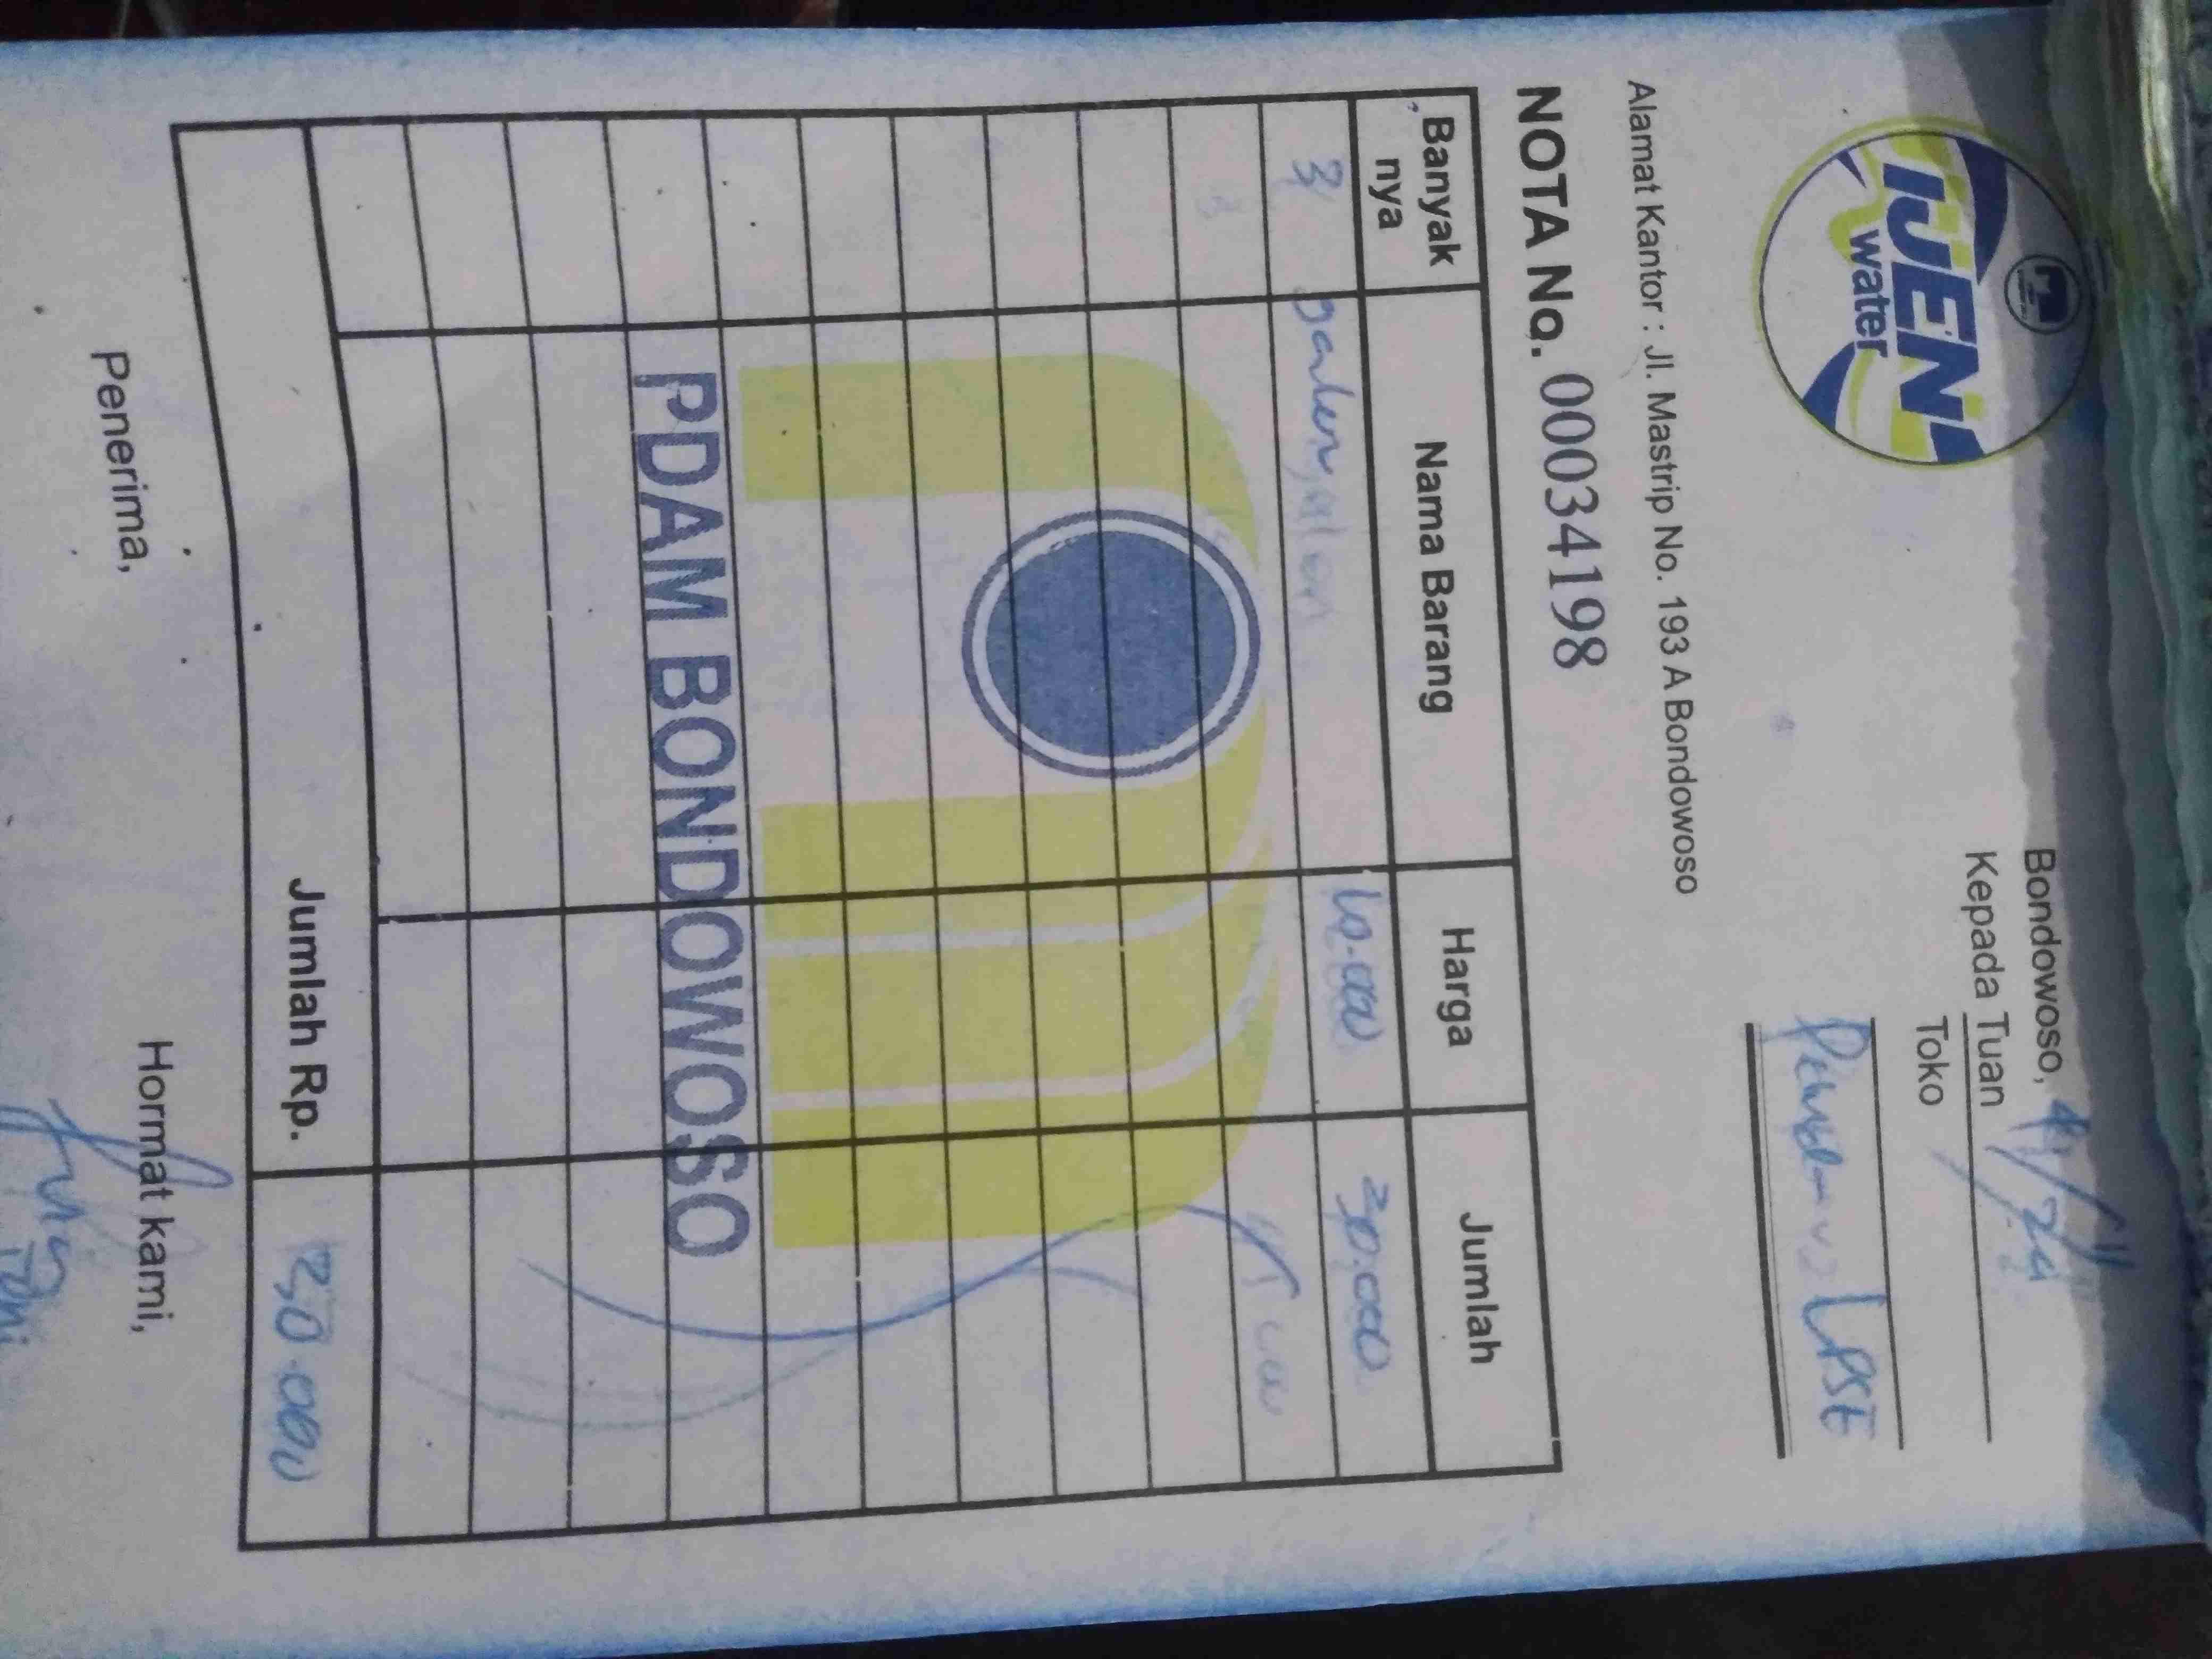 IJEN
water
Bondowoso, 4/11/24
Kepada Tuan
Toko
LPSE
Alamat Kantor : Jl. Mastrip No. 193 A Bondowoso
NOTA No. 00034198
Banyak nya Nama Barang Harga Jumlah
3 galon 10.000 30.000
PDAM BONDOWOSO
Jumlah Rp. 30.000
Penerima, Hormat kami,